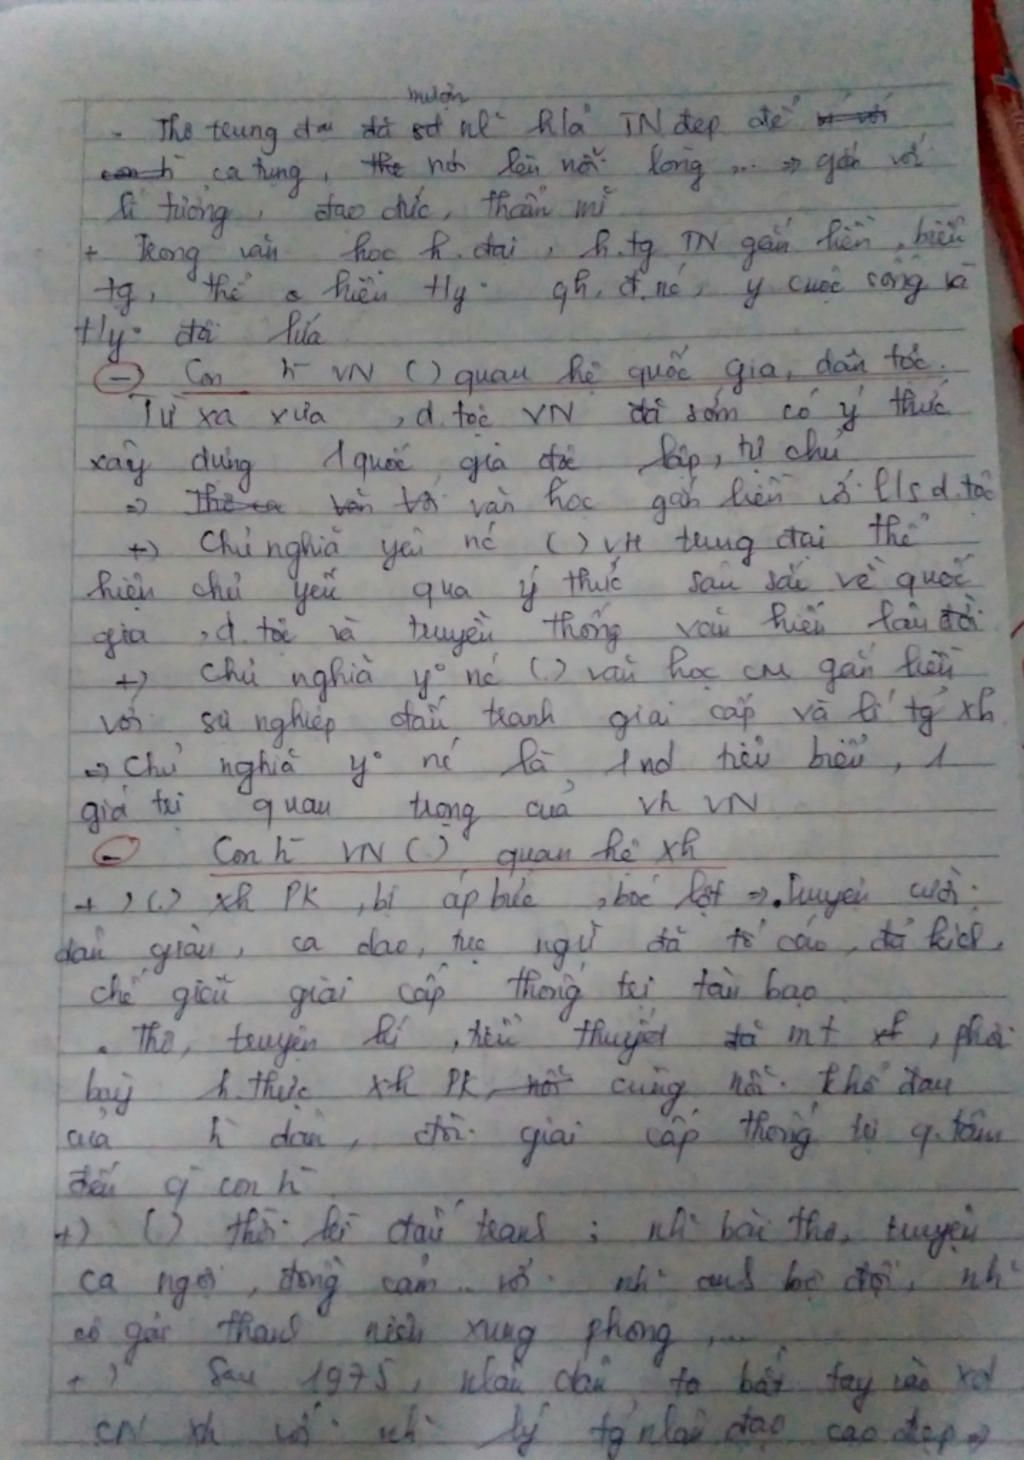 mượn
. Thơ trung đại đã sd nh~ h/ả TN đẹp để
ca tụng, nói lên nỗi lòng ... => gắn với
lí tưởng, đạo đức, thẩm mĩ
+ Trong văn học h.đại, h.tg TN gắn liền,
tg, thể hiện t/y qh, đ.nc, y cuộc sống và
t/y đôi lứa
- Con h~ VN (.) quan hệ quốc gia, dân tộc.
Từ xa xưa, d.tộc VN đã sớm có ý thức
xây dựng 1 quốc gia độc lập, tự chủ
=> văn học gắn liền vs l/s d.tộc
+) Chủ nghĩa yêu nc (.) VH trung đại thể
hiện chủ yếu qua ý thức sâu sắc về quốc
gia, d.tộc và truyền thống văn hiến lâu đời
+) Chủ nghĩa y° nc (.) văn học CM gắn liền
với sự nghiệp đấu tranh giai cấp và lí tg xh
=> Chủ nghĩa y° nc là 1 nd tiêu biểu, 1
giá trị quan trọng của vh VN
- Con h~ VN (.) quan hệ xh
+, (.) xh PK, bị áp bức, bóc lột => Truyện cười
dân gian, ca dao, tục ngữ đã tố cáo, đả kích,
chế giễu giai cấp thống trị tàn bạo
. Thơ, truyện kí, tiểu thuyết đã mt, phơi
bày h.thực xh PK, cùng nỗi khổ đau
của h~ dân, đòi giai cấp thống trị q.tâm
đến con h~
+) (.) thời kì đấu tranh : nh~ bài thơ, truyện
ca ngợi, đồng cảm .. với nh~ anh bộ đội, nh~
cô gái thanh niên xung phong, ...
+) Sau 1975, nhân dân ta bắt tay vào xd
CN xh với nh~ lý tg nhân đạo cao đẹp =>